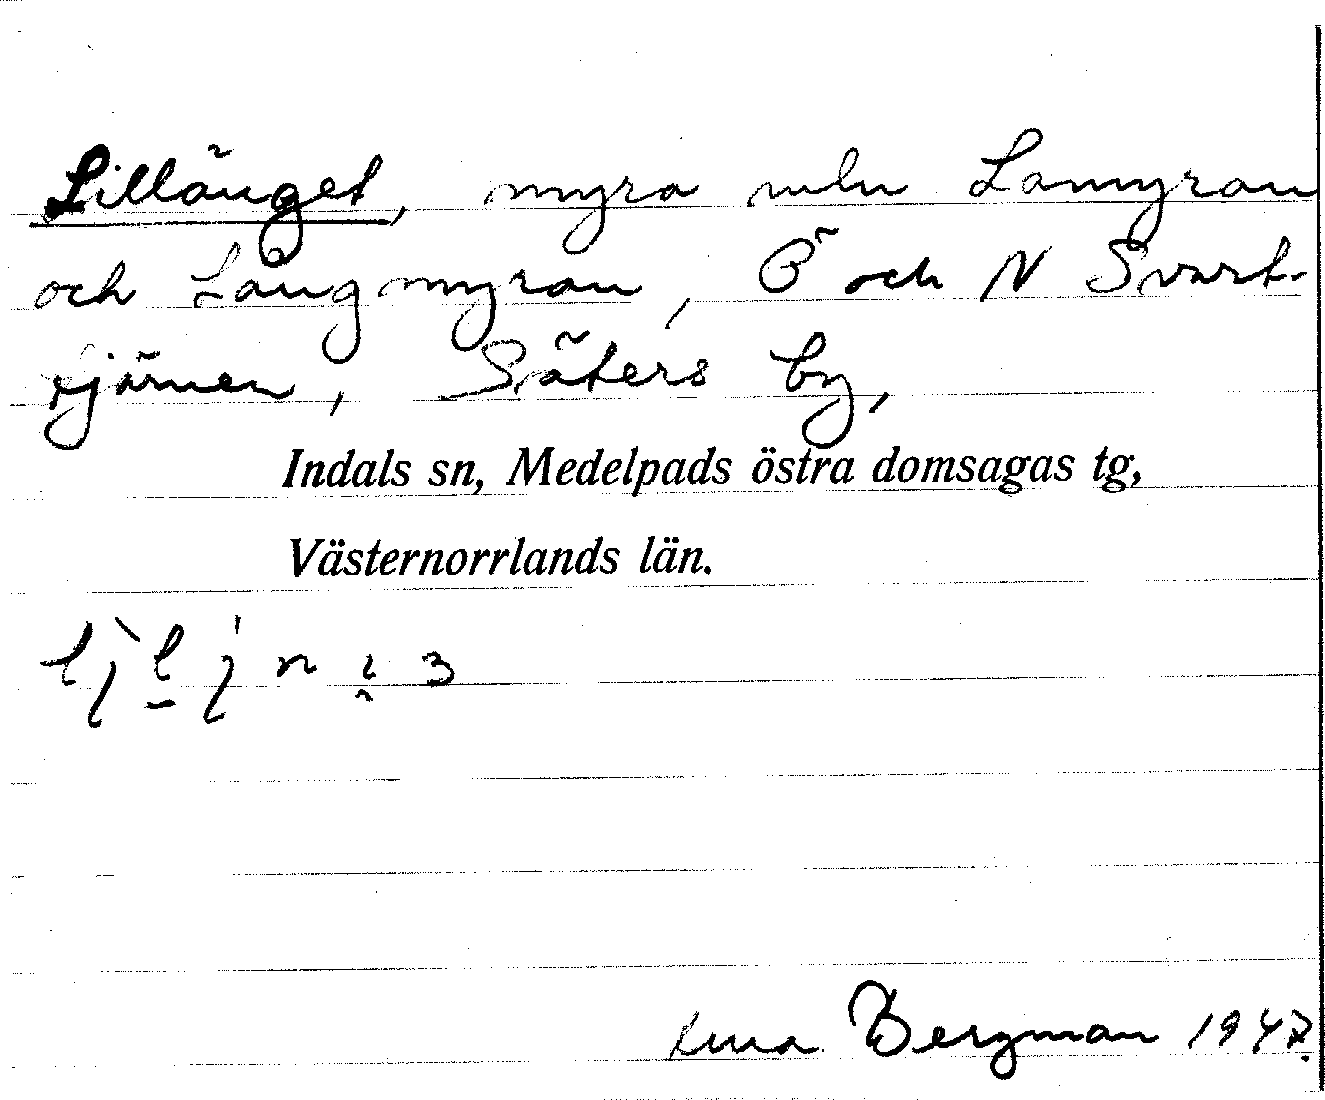 Lillänget, myra mln Lamyran
och Långmyran, Ö och N Svart-
tjärnen, Säters by,
Indals sn, Medelpads östra domsagas tg,
Västernorrlands län.
Bergman 1947